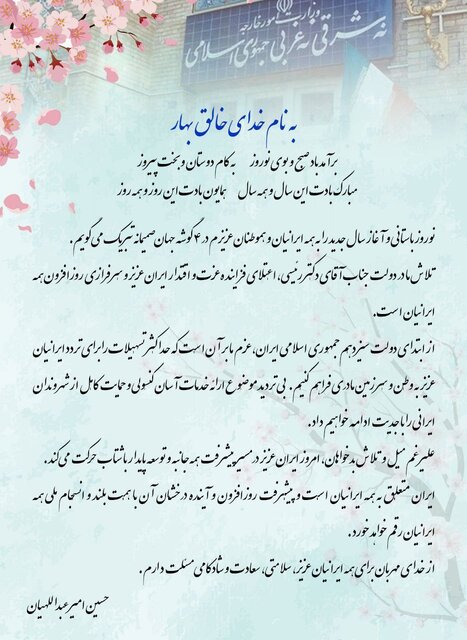 وزارت امور خارجه
نه شرقی نه غربی جمهوری اسلامی
به نام خدای خالق بهار
برآمد باد صبح و بوی نوروز    به کام دوستان و بخت پیروز
مبارک بادت این سال و همه سال    همایون بادت این روز و همه روز
نوروز باستانی و آغاز سال جدید را به همه ایرانیان و هموطنان عزیزم در ۴ گوشه جهان صمیمانه تبریک می‌گویم.
تلاش ما در دولت جناب آقای دکتر رئیسی، اعتلای فزاینده عزت و اقتدار ایران عزیز و سرفرازی روزافزون همه
ایرانیان است.
از ابتدای دولت سیزدهم جمهوری اسلامی ایران، عزم ما بر آن است که حداکثر تسهیلات را برای تردد ایرانیان
عزیز به وطن و سرزمین مادری فراهم کنیم. بی تردید موضوع ارائه خدمات آسان کنسولی و حمایت کامل از شهروندان
ایرانی را با جدیت ادامه خواهیم داد.
علیرغم میل و تلاش بدخواهان، امروز ایران عزیز در مسیر پیشرفت همه جانبه و توسعه پایدار با شتاب حرکت می‌کند.
ایران متعلق به همه ایرانیان است و پیشرفت روزافزون و آینده درخشان آن با همت بلند و انسجام ملی همه
ایرانیان رقم خواهد خورد.
از خدای مهربان برای همه ایرانیان عزیز، سلامتی، سعادت و شادکامی مسئلت دارم.
حسین امیرعبداللهیان